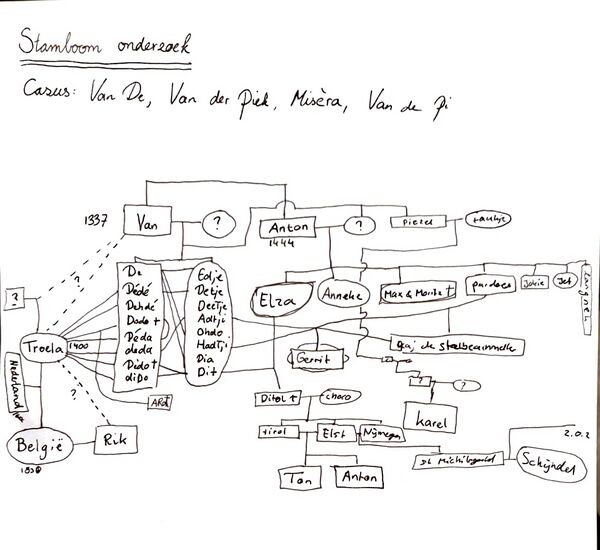 Stamboom onderzoek
Casus: Van De, Van der Piek, Misèra, Van de Pi
1337
Van
?
Anton
1444
?
Piezel
?
?
De
Dédé
Dehdé
Dodo †
Déda
deda
Dido †
diDo
Edje
Detje
Deetje
Adtji
Ohdo
Hadtji
Dia
Dit
Elza
Anneke
Max & Moritz †
Jokie
Jet
Troela
1400
Gerrit
Gaj de
Nederland
ARd
Ditol †
choco
?
?
Karel
?
tirol
Elst
Nijmegen
België
1830
Rik
St Michielsgestel
2.0.2
Schijndel
Ton
Anton